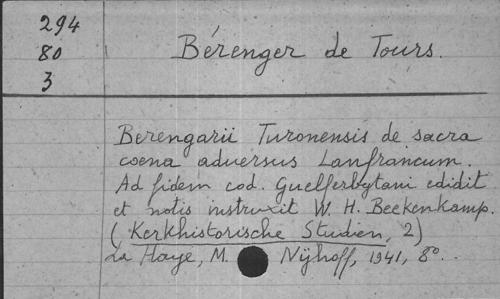 294
80
3
Bérenger de Tours.
Berengarii Turonensis de sacra
coena adversus Lanfrancum.
Ad fidem cod. Guelferbytani edidit
et notis instruxit W. H. Beekenkamp.
(Kerkhistorische Studien, 2)
La Haye, M. Nijhoff, 1941, 8o..